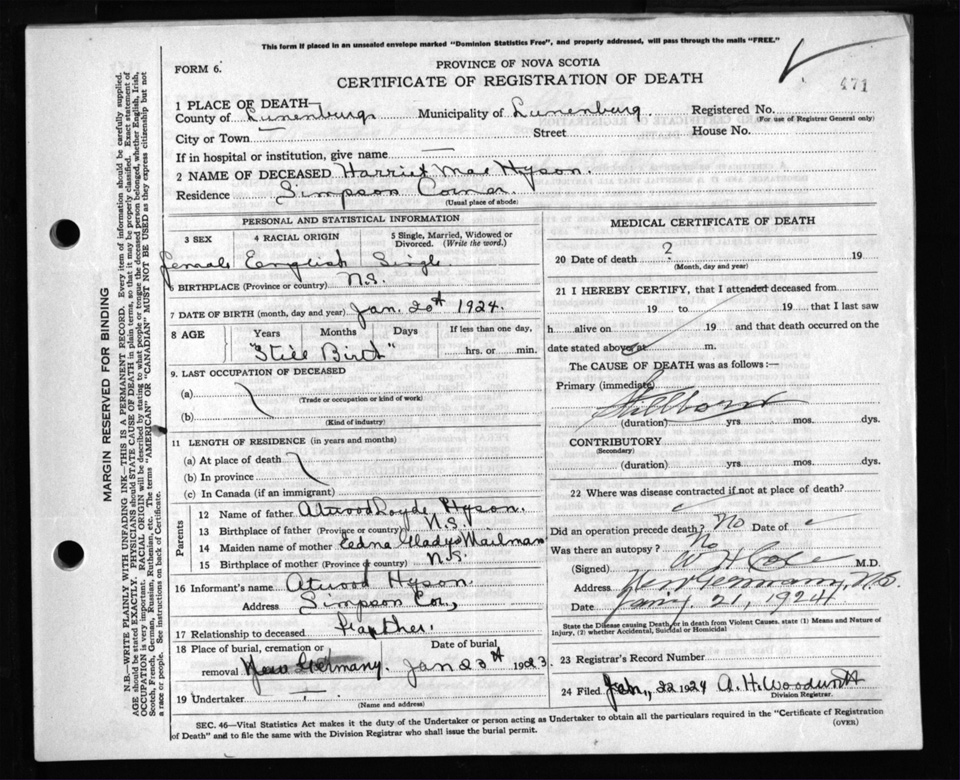 This form if placed in an unsealed envelope marked "Dominion Statistics Free", and properly addressed, will pass through the mails "FREE."
FORM 6.
PROVINCE OF NOVA SCOTIA
CERTIFICATE OF REGISTRATION OF DEATH
471
1 PLACE OF DEATH—
County of Lunenburg Municipality of Lunenburg Registered No.
(For use of Registrar General only)
City or Town — Street House No.
If in hospital or institution, give name —
2 NAME OF DECEASED Harriet Mae Hyson.
Residence Simpson Corner.
(Usual place of abode)
PERSONAL AND STATISTICAL INFORMATION
3 SEX 4 RACIAL ORIGIN 5 Single, Married, Widowed or Divorced. (Write the word.)
female English Single
6 BIRTHPLACE (Province or country) N.S.
7 DATE OF BIRTH (month, day and year) Jan. 20th 1924.
8 AGE Years Months Days If less than one day,
"Still Birth" hrs. or min.
9. LAST OCCUPATION OF DECEASED
(a)
(Trade or occupation or kind of work)
(b)
(Kind of industry)
11 LENGTH OF RESIDENCE (in years and months)
(a) At place of death
(b) In province
(c) In Canada (if an immigrant)
Parents
12 Name of father Atwood Loyde Hyson.
13 Birthplace of father (Province or country) N.S.
14 Maiden name of mother Eedna Gladys Mailman
15 Birthplace of mother (Province or country) N.S.
16 Informant's name Atwood Hyson.
Address Simpson Cor.,
17 Relationship to deceased Father.
18 Place of burial, cremation or removal New Germany. Date of burial Jan 23rd 1923.
19 Undertaker —
(Name and address)
MEDICAL CERTIFICATE OF DEATH
20 Date of death ? 19
(Month, day and year)
21 I HEREBY CERTIFY, that I attended deceased from
19 to 19 that I last saw
h alive on 19 and that death occurred on the
date stated above at m.
The CAUSE OF DEATH was as follows:—
Primary (immediate)
Stillborn
(duration) yrs. mos. dys.
CONTRIBUTORY
(Secondary)
(duration) yrs. mos. dys.
22 Where was disease contracted if not at place of death?
Did an operation precede death? No Date of
Was there an autopsy? No
(Signed) W H Cole M.D.
Address New Germany, N.S.
Date Jan'y. 21, 1924
State the Disease causing Death, or in death from Violent Causes, state (1) Means and Nature of Injury, (2) whether Accidental, Suicidal or Homicidal
23 Registrar's Record Number
24 Filed Jan, 22 1924 A. H. Woodworth
Division Registrar.
SEC. 46—Vital Statistics Act makes it the duty of the Undertaker or person acting as Undertaker to obtain all the particulars required in the "Certificate of Registration of Death" and to file the same with the Division Registrar who shall issue the burial permit.
(OVER)
MARGIN RESERVED FOR BINDING
N.B.—WRITE PLAINLY WITH UNFADING INK—THIS IS A PERMANENT RECORD. Every item of information should be carefully supplied.
AGE should be stated EXACTLY. PHYSICIANS should STATE CAUSE OF DEATH in plain terms, so that it may be properly classified. Exact statement of
OCCUPATION is very important. RACIAL ORIGIN will be described by stating to what people or tongue the deceased person belonged, whether English, Irish,
Scotch, French, German, Russian, Ruthenian, etc. The terms "AMERICAN" OR "CANADIAN" MUST NOT BE USED as they express citizenship but not
a race or people. See instructions on back of Certificate.